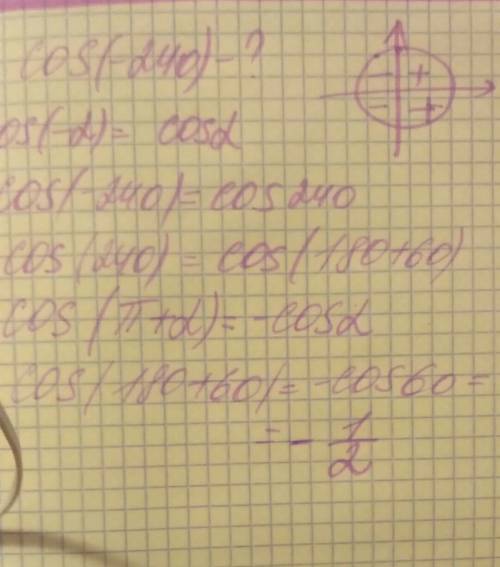 cos(-240) - ?
os(-α) = cosα
cos(-240) = cos 240
cos(240) = cos(180+60)
cos(π+α) = -cosα
cos(180+60) = -cos60 =
= - 1/2
- +
- +